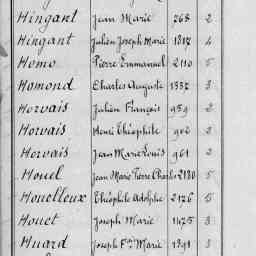 Hingant Jean Marie 768 2
Hingant Julien Joseph Marie 1317 4
Homo Pierre Emmanuel 2110 5
Homond Charles Auguste 1337 3
Horvais Julien François 959 2
Horvais Henri Théophile 902 2
Horvais Jean Marie Louis 961 2
Houel Jean Marie Pierre Charles 2180 5
Houelleux Théophile Adolphe 2176 5
Houet Joseph Marie 1475 3
Huard Joseph Fois Marie 1391 3